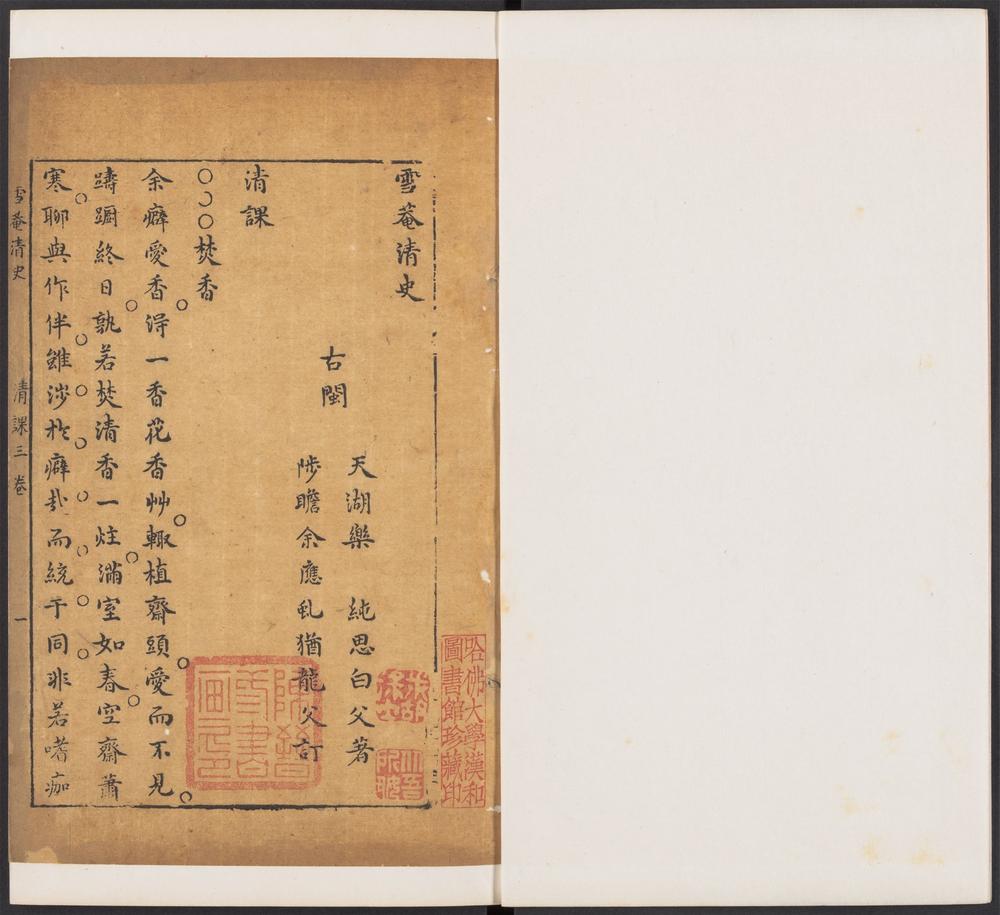 雪菴清史
古閩
天湖樂　純思白父著
陟瞻余應虬猶龍父訂
清課
焚香
余癖愛香淂一香花香艸輙植齋頭愛而不見
躊躕終日孰若焚清香一炷滿室如春空齋蕭
寒聊與作伴雖涉於癖㢤而統于同非若嗜痂
雪菴清史　清課三卷　一
哈佛大學漢和
圖書館珍藏印